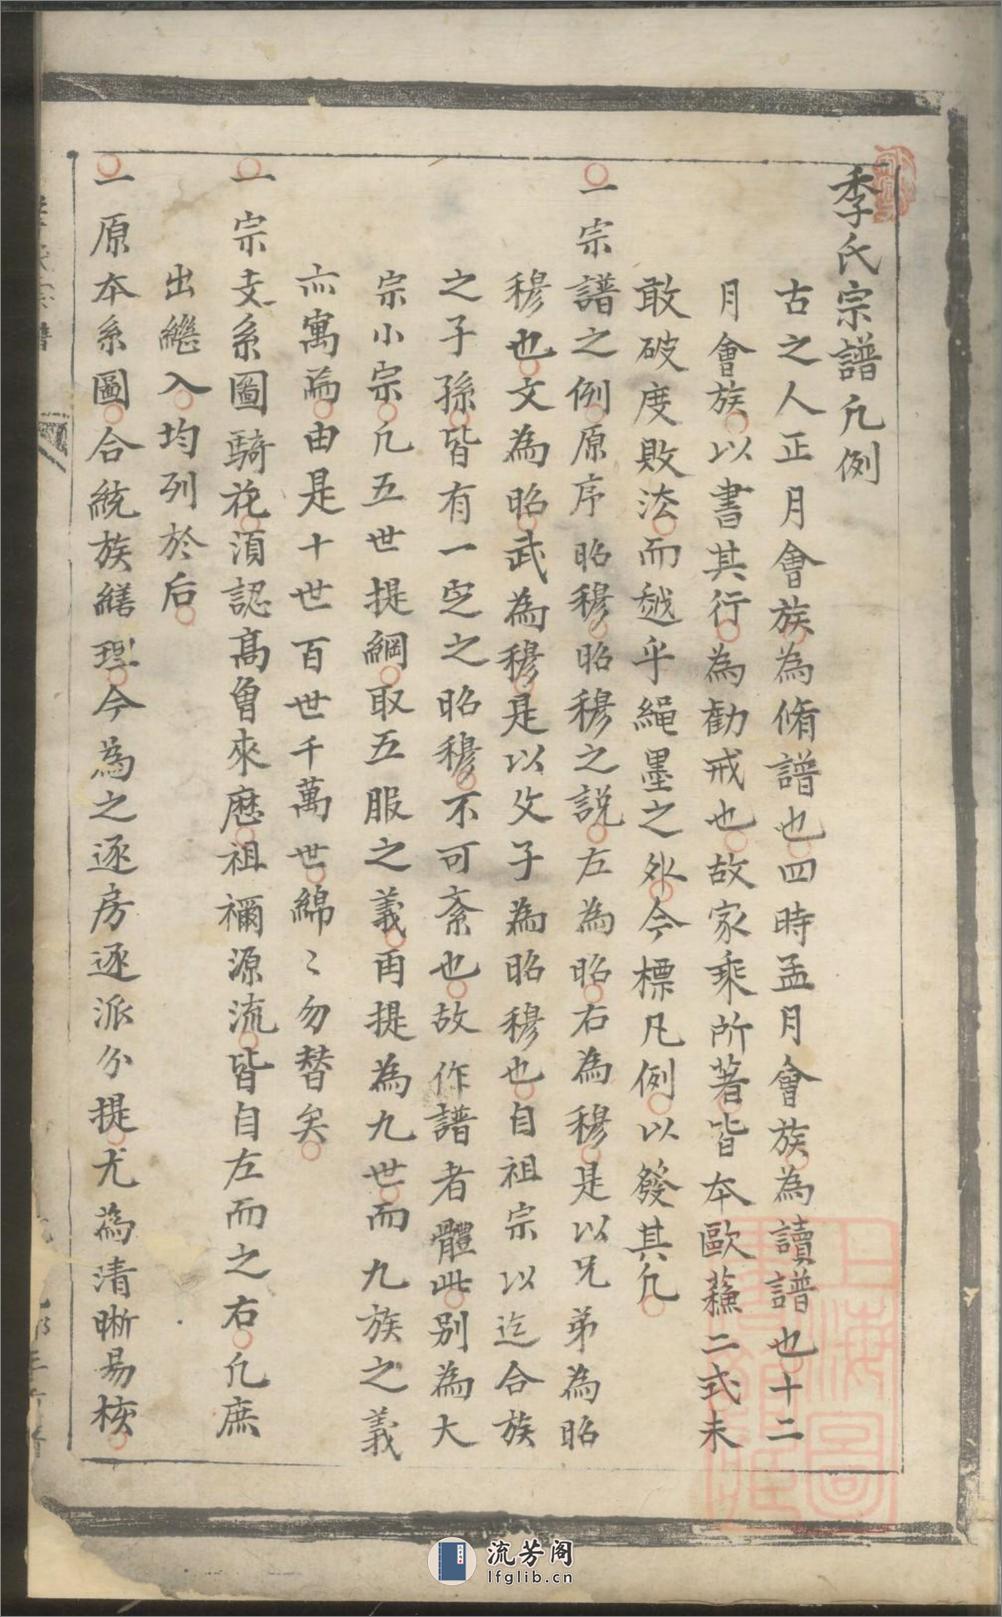 季氏宗譜凡例
古之人正月會族為脩譜也四時孟月會族為讀譜也十二
月會族以書其行為勸戒也故家乘所著皆本歐蘓二式未
敢破度敗法而越乎繩墨之外今標凡例以發其凡
一宗譜之例原序昭穆昭穆之説左為昭右為穆是以兄弟為昭
穆也文為昭武為穆是以父子為昭穆也自祖宗以迄合族
之子孫皆有一定之昭穆不可紊也故作譜者體此別為大
宗小宗凡五世提綱取五服之義再提為九世而九族之義
亦寓焉由是十世百世千萬世綿〻勿替矣
一宗支系圖騎花湏認髙曾來歷祖禰源流皆自左而之右凡庶
出繼入均列於后
一原本系圖合統族繕理今為之逐房逐派分提尤為清晰易核
上海圖
流芳阁
lfglib.cn